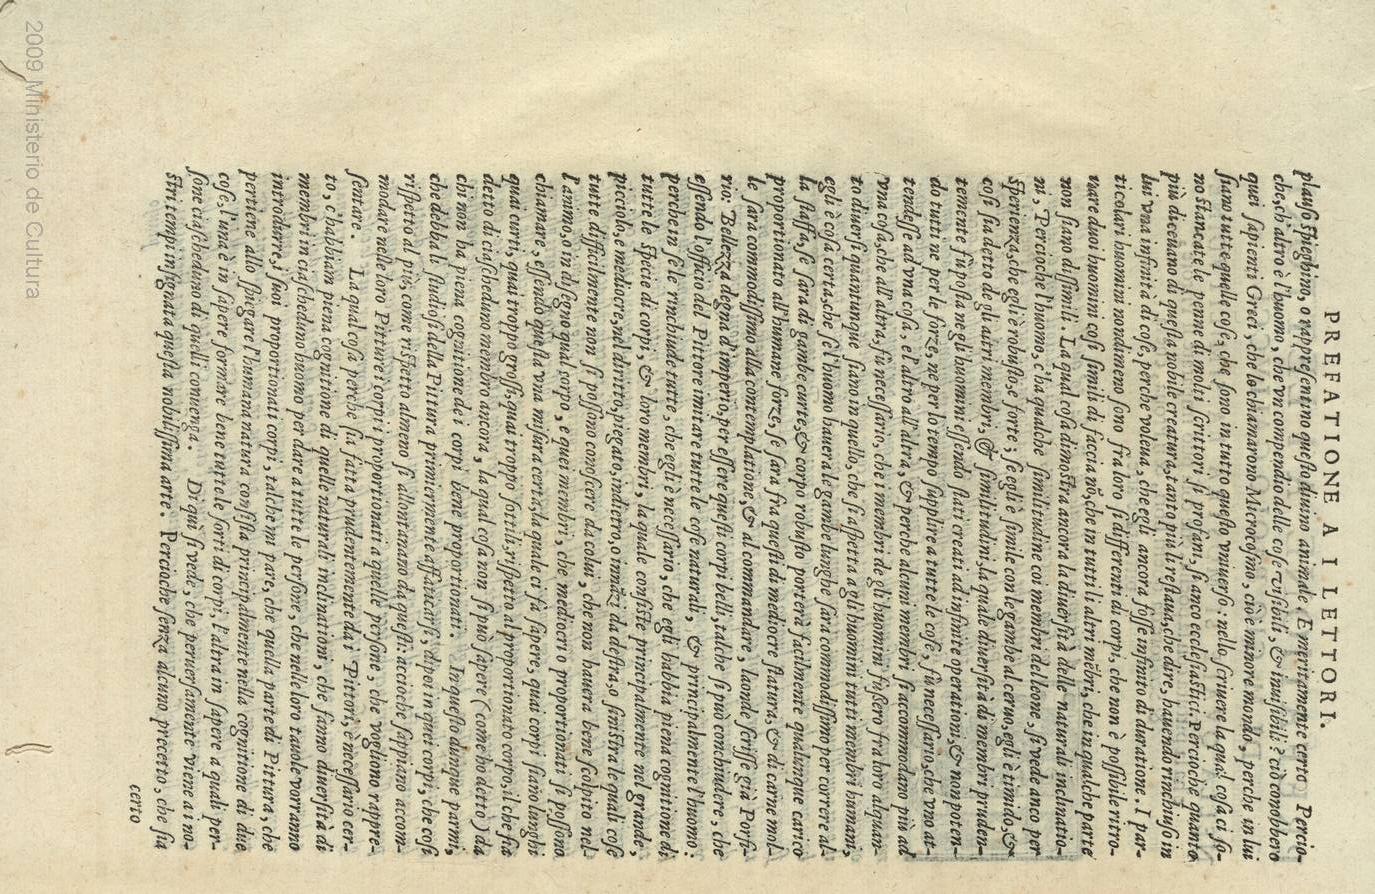 PREFATIONE A I LETTORI.
plauso spieghino, o rappresentino questo diuino animale. E meritamente certo. Percio-
che, ch' altro è l'huomo, che vn compendio delle cose visibili, & inuisibili? ciò conobbero
quei sapienti Greci, che lo chiamarono Microcosmo, cioè minore mondo, perche in lui
siano tutte quelle cose, che sono in tutto questo vniuerso: nello scriuere la qual cosa ci so-
no stancate le penne di molti scrittori si profani, si anco ecclesiastici. Percioche quanto
più diceuano di questa nobile creatura, tanto più li restaua, che dire, hauendo rinchiuso in
lui vna infinità di cose, perche voleua, che egli ancora fosse infinito di duratione. I par-
ticolari huomini nondimeno sono fra loro sì differenti di corpi, che non è possibile ritro-
uare duoi huomini cosi simili di faccia nõ, che in tutti l'altri mẽbri, che in qualche parte
non siano dissimili. La qual cosa dimostra ancora la diuersità delle naturali inclinatio-
ni, Percioche l'huomo, c'ha qualche similitudine coi membri del leone, si vede anco per
sperienza, che egli è robusto, e forte; se egli è simile con le gambe al ceruo, egli è timido, &
cosi sia detto de gli altri membri, & similitudini, la quale diuersità di membri pruden-
temente fù posta ne gli huomini essendo stati creati ad infinite operationi, & non poten-
do tutti ne per le forze, ne per lo tempo supplire a tutte le cose, fù necessario, che vno at-
tendesse ad vna cosa, e l'altro all'altra, & perche alcuni membri si accommodano più ad
vna cosa, che all'altra, fù necessario, che i membri de gli huomini fussero fra loro alquan-
to diuersi quantunque siano in quello, che si aspetta a gli huomini tutti membri humani,
egli è cosa certa, che se l'huomo hauerà le gambe lunghe sarà commodissimo per correre al-
la staffa, se sarà di gambe curte, & corpo robusto porterà facilmente qualunque carico
proportionato all'humane forze, se sarà fra questi di mediocre statura, & di carne mol-
le sarà commodissimo alla contemplatione, & al commandare, laonde scrisse già Porfi-
rio: Bellezza degna d'imperio, per essere questi corpi belli, talche si può conchiudere, che
essendo l'officio del Pittore imitare tutte le cose naturali, & principalmente l'huomo:
perche in se le rinchiude tutte, che egli è necessario, che egli habbia piena cognitione di
tutte le specie di corpi, & loro membri, la quale consiste principalmente nel grande,
picciolo, e mediocre, nel diritto, piegato, indietro, o innãzi da destra, o sinistra le quali cose
tutte difficilmente non si possono conoscere da colui, che non hauerà bene scolpito nel-
l'animo, o in disegno qual corpo, e quei membri, che mediocri o proportionati si possono
chiamare, essendo questa vna misura certa, la quale ci fà sapere, quai corpi siano lunghi
quai curti, quai troppo grossi, quai troppo sottili, rispetto al proportionato corpo, il che sia
detto di ciascheduno membro ancora, la qual cosa non si può sapere (come ho detto) da
chi non ha piena cognitione de i corpi bene proportionati. In questo dunque parmi,
che debba li studiosi della Pittura primieramente affaticarsi, dipoi in quei corpi, che cosi
rispetto al più, come rispetto almeno si allontanano da questi: accioche sappiano accom-
modare nelle loro Pitture i corpi proportionati a quelle persone, che vogliono rappre-
sentare. La qual cosa perche sia fatta prudentemente da i Pittori, è necessario cer-
to, c'habbiano piena cognitione di quelle naturali inclinationi, che fanno diuersità di
membri in ciascheduno huomo per dare a tutte le persone, che nelle loro tauole vorranno
introdurre, i suoi proportionati corpi, talche mi pare, che quella parte di Pittura, che
pertiene allo spiegare l'humana natura consista principalmente nella cognitione di due
cose, l'una è in sapere formare bene tutte le sorti di corpi, l'altra in sapere a quali per-
sone ciascheduno di quelli conuenga. Di quì si vede, che peruersamente viene a i no-
stri tempi insegnata questa nobilissima arte. Percioche senza alcuno precetto, che sia
certo
2009 Ministerio de Cultura